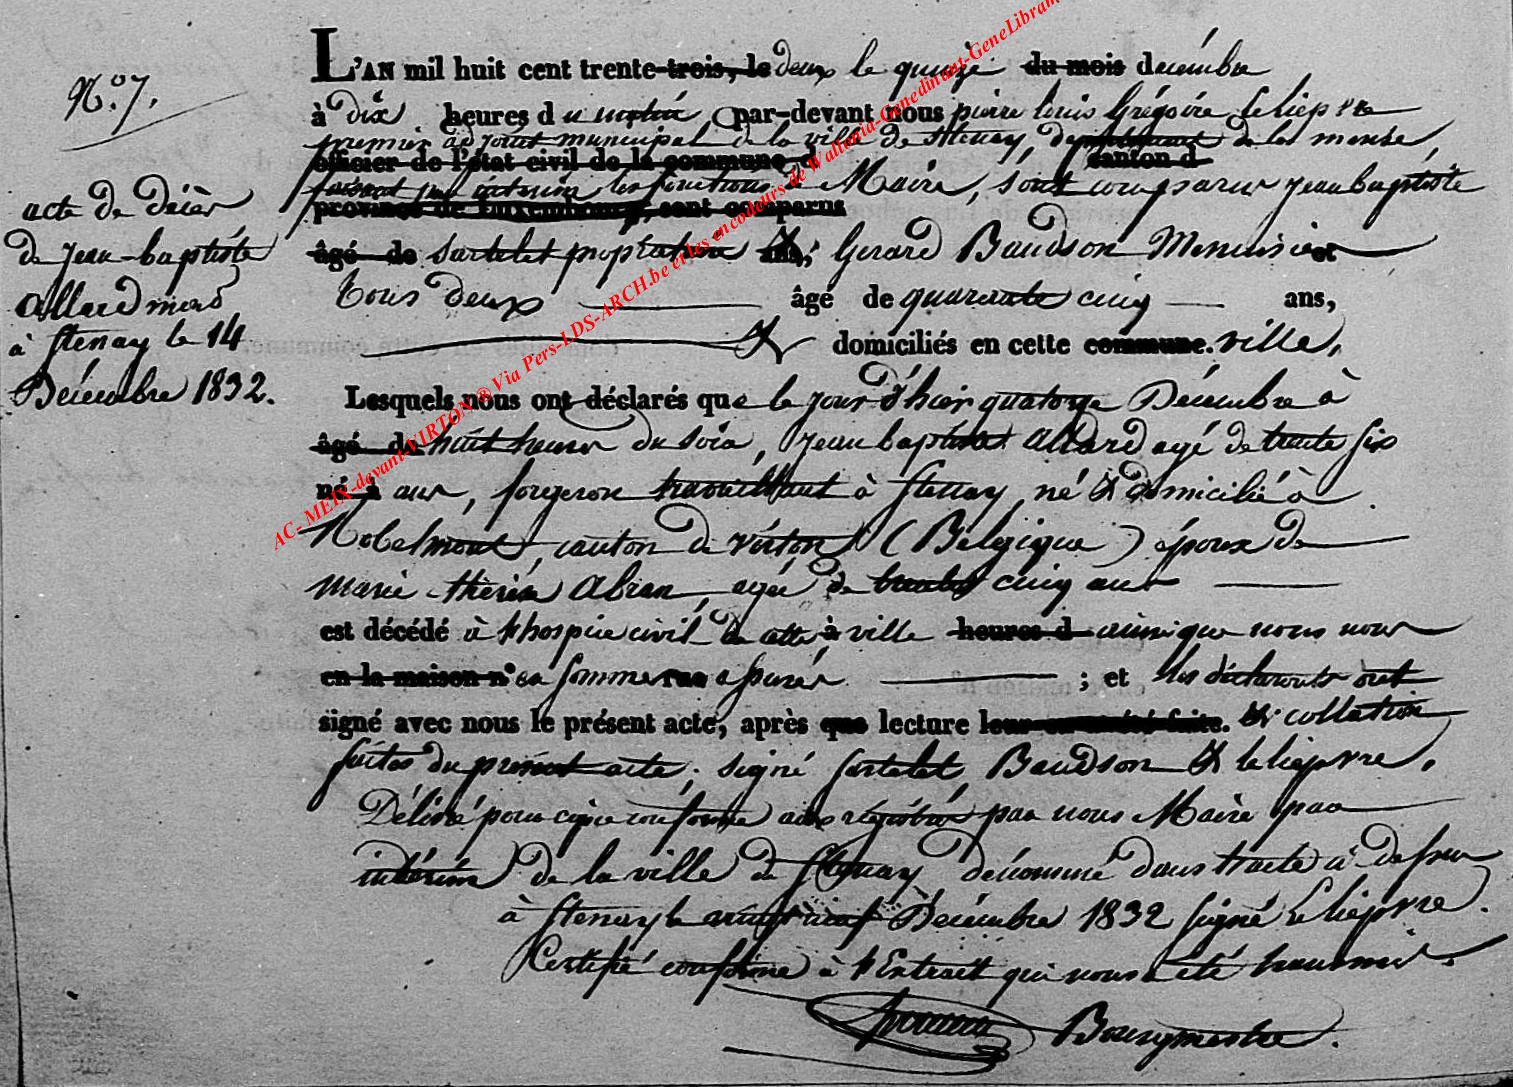 N.° 7.
acte de décès
de jean-baptiste
allard mort
à Stenay le 14
Décembre 1832.
L'AN mil huit cent trente trois, le deux le quinze du mois décembre
à dix heures du matin, par-devant nous pierre louis Grégoire Leliepvre
premier adjoint municipal de la ville de Stenay, département de la meuse,
officier de l'état civil de la commune d canton d
faisant par intérim les fonctions de Maire, sont comparus jean baptiste
province de Luxembourg, sont comparus
âgé de Sartelet propriétaire ans, & Gerard Baudson Menuisier et
tous deux âgé de quarante cinq ans,
& domiciliés en cette commune. ville,
Lesquels nous ont déclarés que le jour d'hier quatorze Décembre à
âgé de huit heures du soir, jean baptiste allard agé de trente six
né à ans, forgeron travaillant à Stenay, né & domicilié à
Robelmont, canton de virton (Belgique) époux de
marie thérèse abran, agée de trente cinq ans
est décédé à l'hospice civil de cette à ville heures d ainsi que nous nous
en la maison n° en sommes rue assurés ; et les déclarants ont
signé avec nous le présent acte, après que lecture leur en a été faite. & collation
faites du présent acte. signé Sartelet, Baudson & leliepvre.
Délivré pour copie conforme aux régistres par nous Maire par
intérim de la ville de Stenay dénommé dans l'acte ci dessus
à Stenay le vingt neuf Décembre 1832 signé Leliepvre.
Certifié conforme à l'Extrait qui nous a été transmis.
Bourgmestre.
AC- MEIX-devant-VIRTON ® Via Pers-LDS-ARCH.be et les encodeurs de Wallonia-Genedinant-GeneLibram